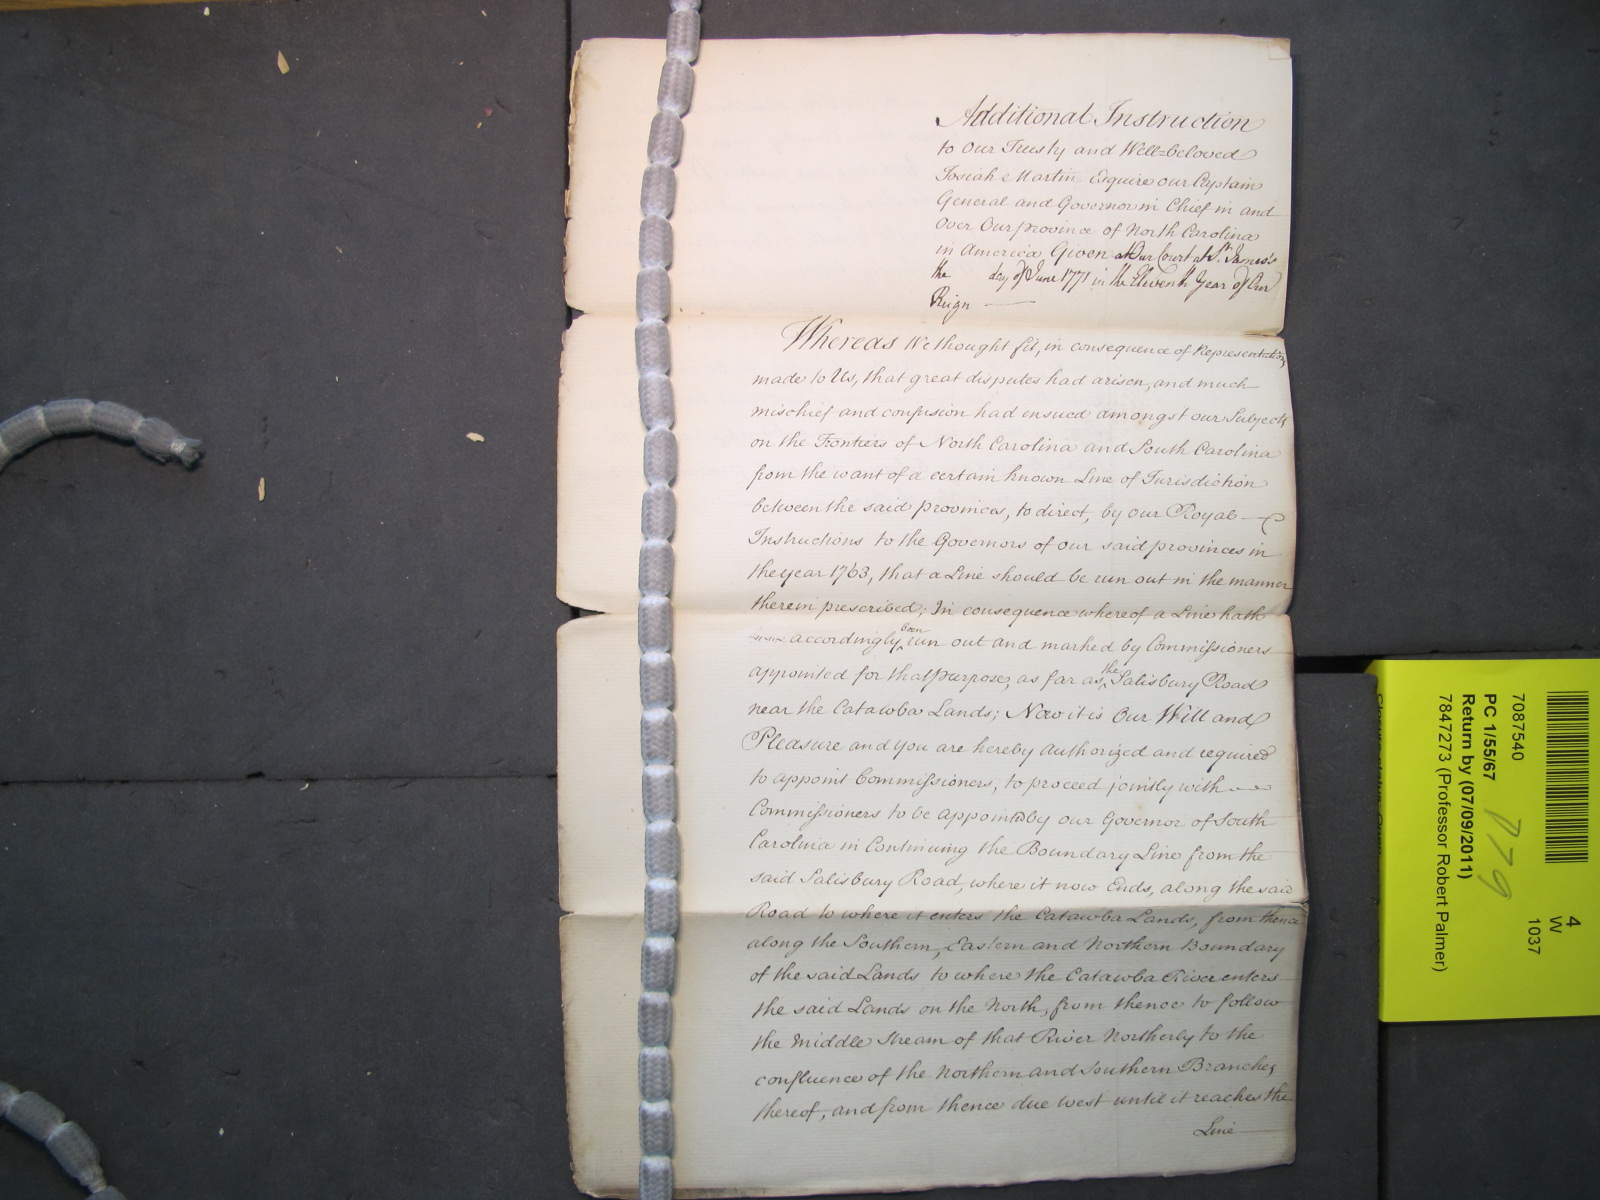 Additional Instruction
to Our Trusty and Well=beloved
Josiah Martin Esquire our Captain
General and Governor in Chief in and
Over Our province of North Carolina
in America Given at Our Court at St. James's
the day of June 1771 in the Eleventh Year of Our
Reign
Whereas We thought fit, in consequence of Representations
made to Us, that great disputes had arisen, and much
mischief and confusion had ensued amongst our Subjects
on the Frontiers of North Carolina and South Carolina
from the want of a certain known Line of Jurisdiction
between the said provinces, to direct, by our Royal
Instructions to the Governors of our said provinces in
the year 1763, that a Line should be run out in the manner
therein prescribed; In consequence whereof a Line hath
accordingly been run out and marked by Commissioners
appointed for that purpose, as far as the Salisbury Road
near the Catawba Lands; Now it is Our Will and
Pleasure and you are hereby authorized and required
to appoint Commissioners, to proceed jointly with
Commissioners to be appointed by our Governor of South
Carolina in Continuing the Boundary Line from the
said Salisbury Road, where it now Ends, along the said
Road to where it enters the Catawba Lands, from thence
along the Southern, Eastern and Northern Boundary
of the said Lands to where the Catawba River enters
the said Lands on the North, from thence to follow
the Middle Stream of that River Northerly to the
confluence of the Northern and Southern Branches
thereof, and from thence due west until it reaches the
Line
4
W
1037
7087540
PC 1/55/67
Return by (07/09/2011)
7847273 (Professor Robert Palmer)